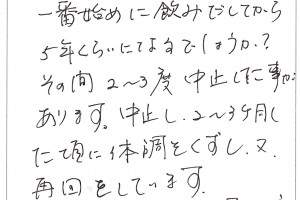 一番始めに飲みだしてから
5年くらいになるでしょうか?
その間2~3度中止した事が
あります。中止し、2~3ヶ月し
た頃に体調をくずし、又
再回をしています。